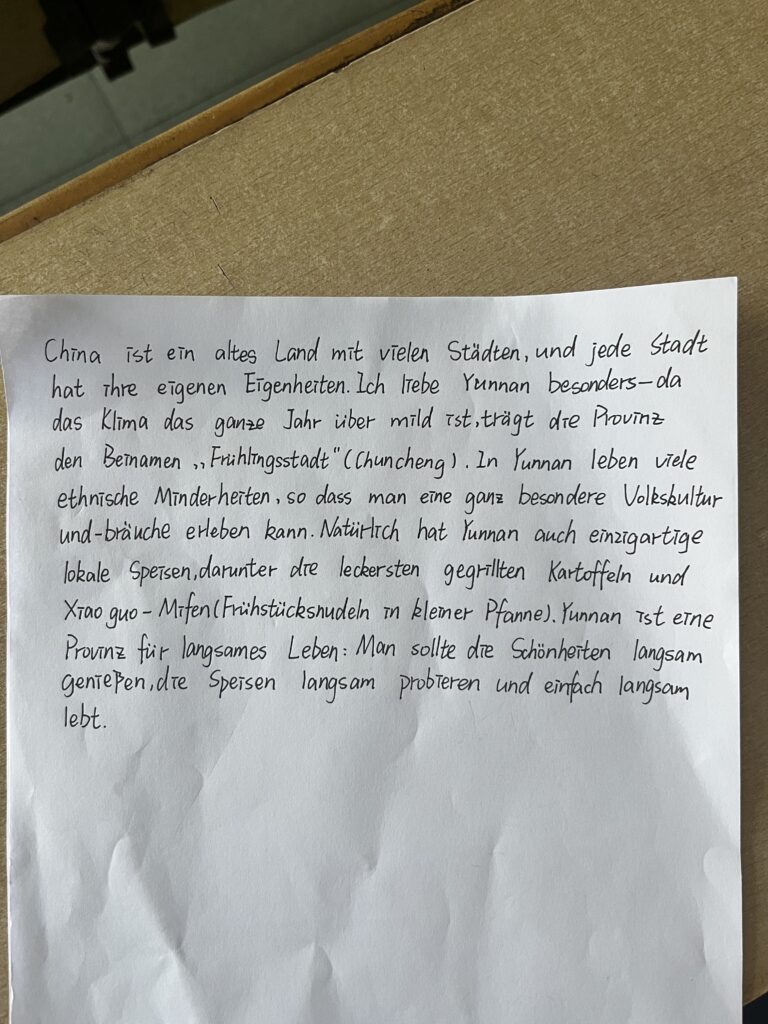 China ist ein altes Land mit vielen Städten, und jede Stadt
hat ihre eigenen Eigenheiten. Ich liebe Yunnan besonders—da
das Klima das ganze Jahr über mild ist, trägt die Provinz
den Beinamen „Frühlingsstadt" (Chuncheng). In Yunnan leben viele
ethnische Minderheiten, so dass man eine ganz besondere Volkskultur
und -bräuche erleben kann. Natürlich hat Yunnan auch einzigartige
lokale Speisen, darunter die leckersten gegrillten Kartoffeln und
Xiao guo - Mifen (Frühstücksnudeln in kleiner Pfanne). Yunnan ist eine
Provinz für langsames Leben: Man sollte die Schönheiten langsam
genießen, die Speisen langsam probieren und einfach langsam
lebt.